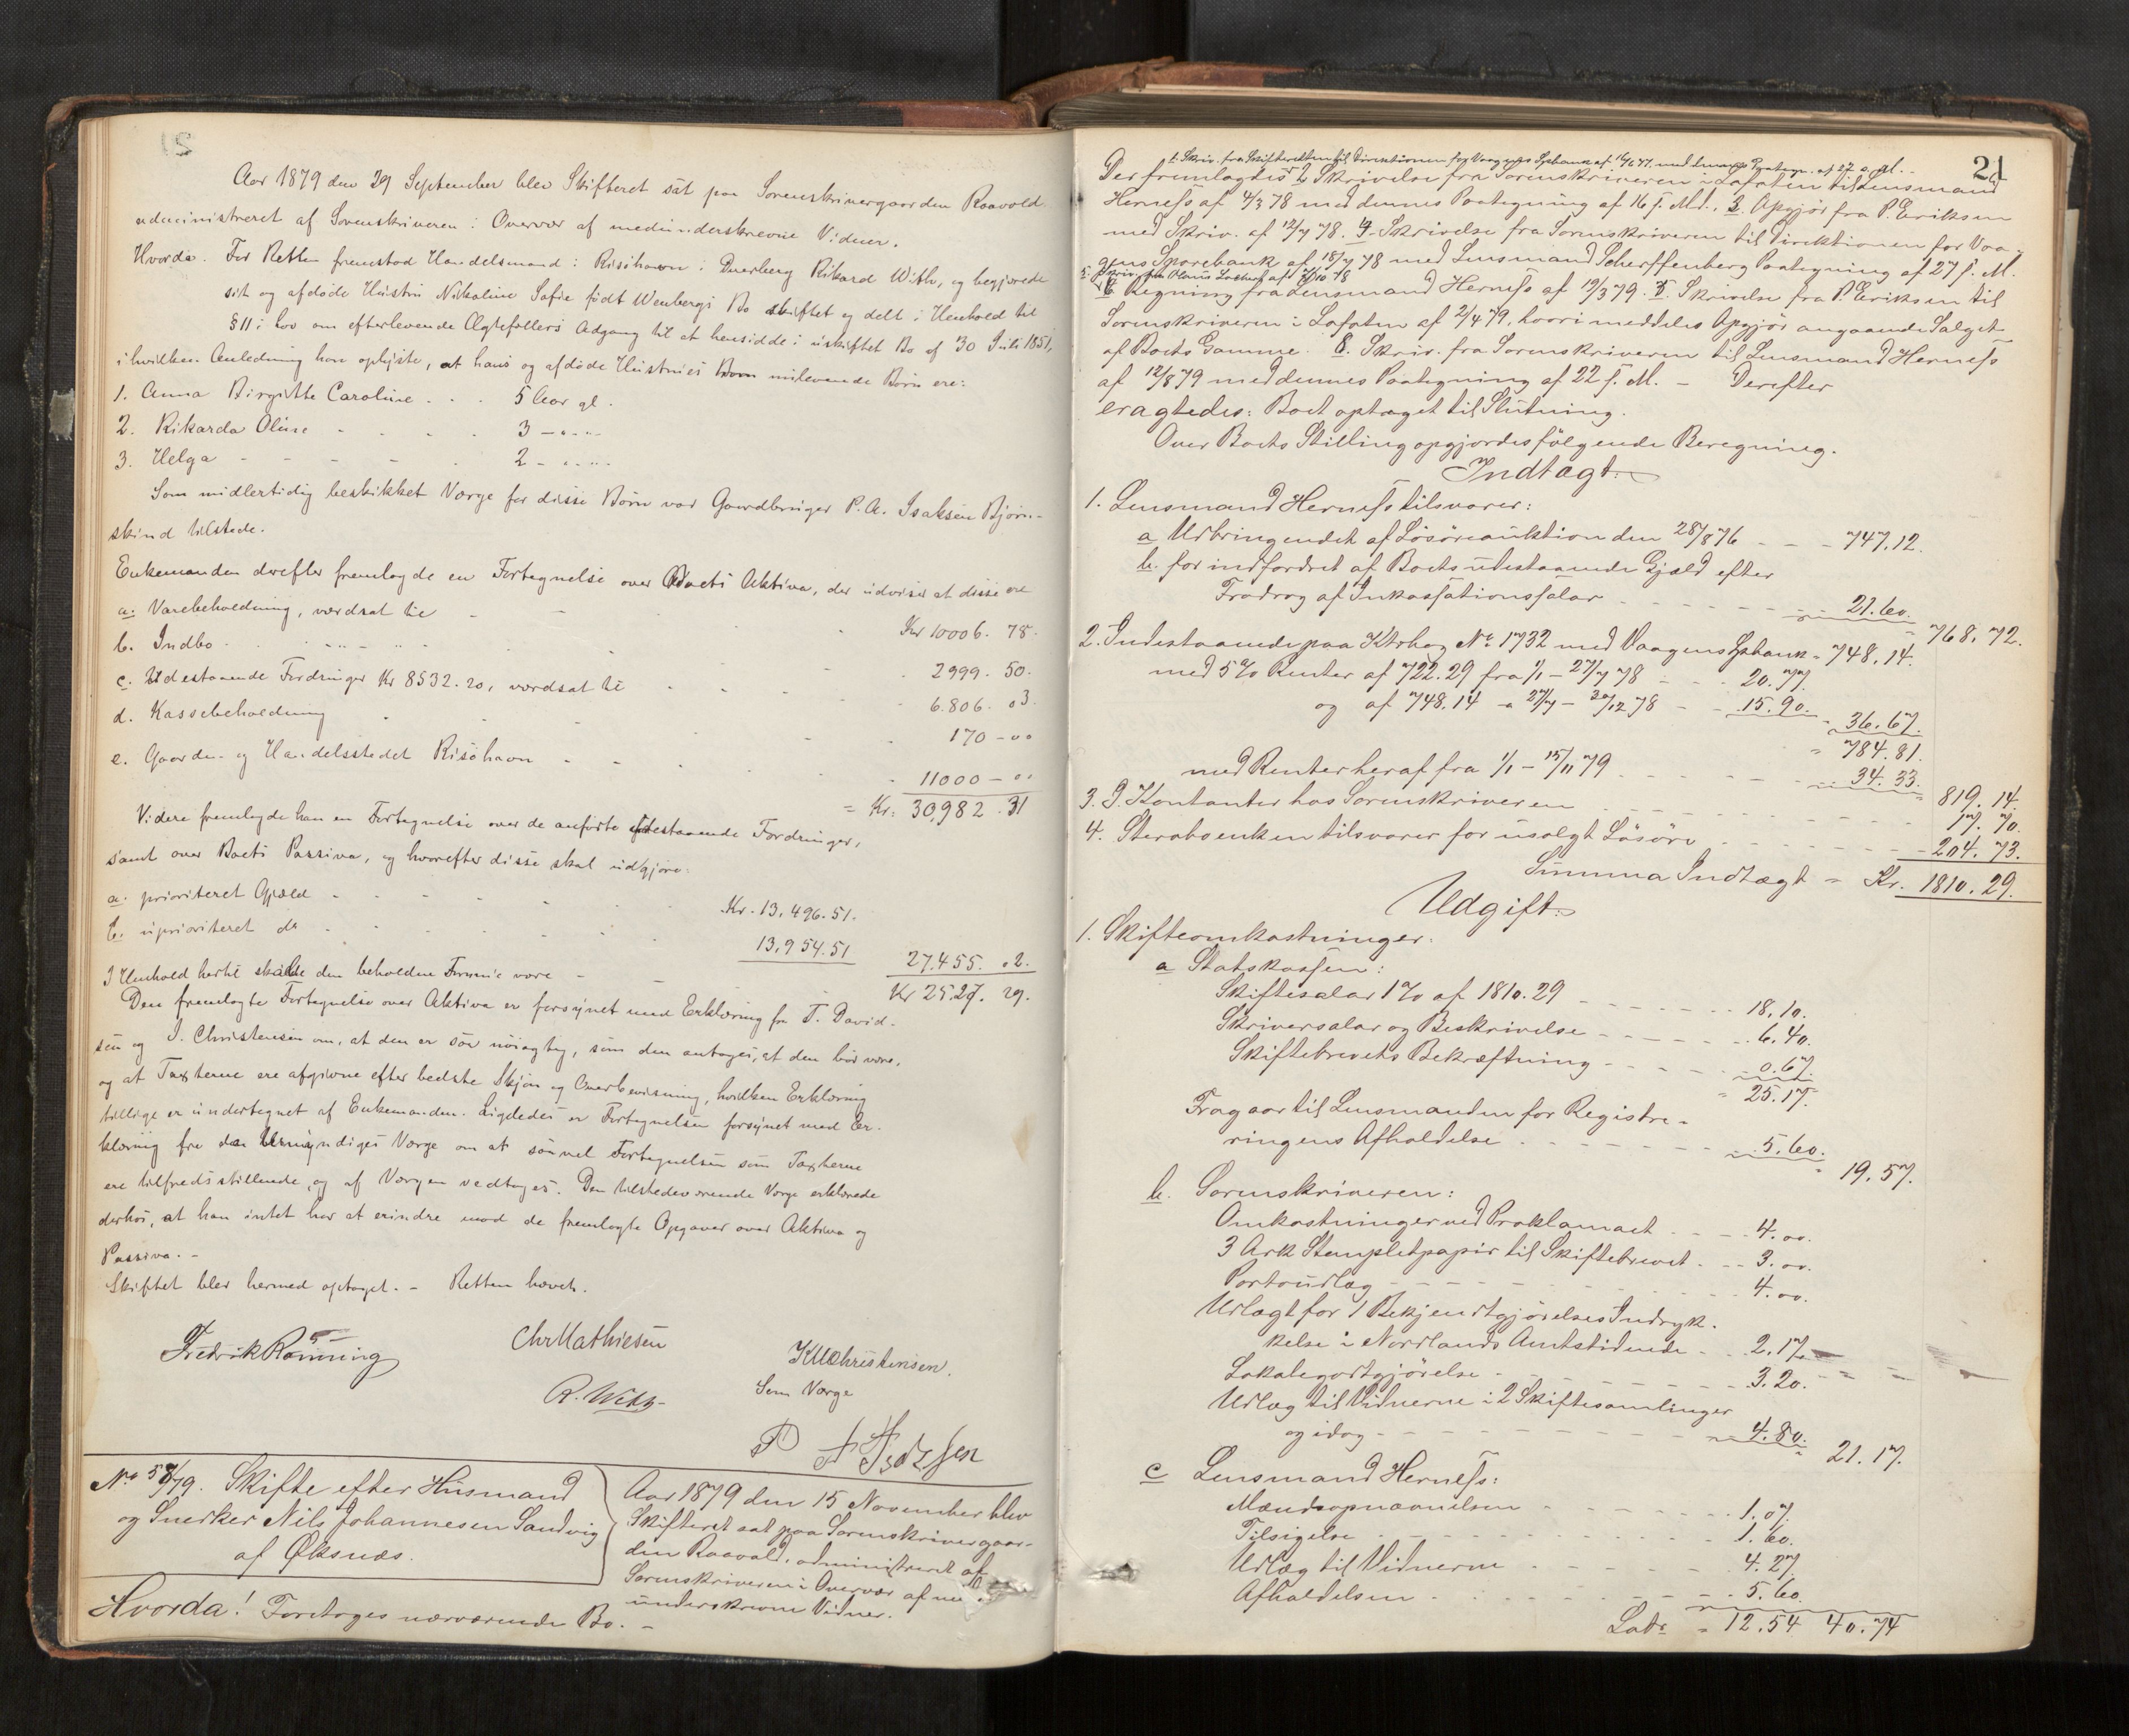 Aar 1879 den 29 September blev Skifteret sat paa Sorenskrivergaarden Raavold
administreret af Sorenskriveren i Overvær af medunderskrevne Vidner.
Hvorda. For Retten fremstod Handelsmand i Risøhavn i Dverberg Rikard With, og begjærede
sit og afdøde Hustru Nikoline Sofie født Wenbergs Bo skiftet og delt i Henhold til
§ 11 i Lov om efterlevende Ægtefællers Adgang til at hensidde i uskiftet Bo af 30 Juli 1851,
i hvilken Anledning han oplyste, at hans og afdøde Hustrues Børn milevende Børn ere:
1. Anna Birgitte Caroline . . . 5 Aar gl.
2. Rikarda Oline - - - - 3 - " - "
3. Helga - - - - - 2 - " - "
Som midlertidig beskikket Værge for disse Børn var Gaardbruger P. A. Isaksen Bjørn-
skind tilstede.
Enkemanden derefter fremlagde en Fortegnelse over Boets Aktiva, der udviser at disse ere
a. Varebeholdning, værdsat til - - - Kr 10006. 78.
b. Indbo . . " - " - " . 2999. 50.
c. Udestaaende Fordringer Kr 8532. 20, værdsat til - - - 6.806. 03.
d. Kassebeholdning - - - 170 - 00
e. Gaarden og Handelsstedet Risøhavn - - - - 11000 - 00
= Kr: 30,982 . 31
Videre fremlagde han en Fortegnelse over de anførte udestaaende Fordringer,
samt over Boets Passiva, og hvorefter disse skal udgjøre:
a. prioriteret Gjæld - - - - Kr. 13,496. 51.
b. uprioriteret do - - - - 13,954. 51 27.455. 02.
I Henhold hertil skulde den beholdne Formue være - - Kr 25.27. 29.
Den fremlagte Fortegnelse over Aktiva er forsynet med Erklæring fra T. David-
sen og I. Christensen om, at den er saa nøiagtig, som den antages, at den bør være,
og at Taxterne ere afgivne efter bedste Skjøn og Overbevisning, hvilken Erklæring
tillige er undertegnet af Enkemanden. Ligeledes er Fortegnelsen forsynet med Er-
klæring fra den Umyndiges Værge om at saavel Fortegnelsen som Taxterne
ere tilfredsstillende, og af Værgen vedtages. Den tilstedeværende Værge erklærede
derhos, at han intet har at erindre mod de fremlagte Opgaver over Aktiva og
Passiva. -
Skiftet blev hermed optaget. - Retten hævet.
Fredrik Rønning Chr Mathiesen K M Christensen.
R. With Som Værge
P A Isaksen
No 58/79. Skifte efter Husmand
og Snerker Nils Johannesen Sandvig
af Øksnæs.
Aar 1879 den 15 November blev
Skifteret sat paa Sorenskrivergaar-
den Raavold, administreret af
Sorenskriveren i Overvær af med
underskrevne Vidner.
Hvorda! Foretages nærværende Bo. -
21
1. Skriv. fra Skifteretten til Direktionen for Vaagens Spbank af 16/6 77. med dennes Paategn. af 22 s. M. -
Der fremlagdes 2. Skrivelse fra Sorenskriveren i Lofoten til Lensmand
Herness af 4/3 78 med dennes Paategning af 16 s. M., 3. Opgjør fra P. Eriksen
med Skriv. af 12/7 78. 4. Skrivelse fra Sorenskriveren til Direktionen for Vaa-
gens Sparebank af 18/7 78 med Lensmand Scherffenberg Paategning af 27 s. M.
5. Skriv. fra Hans af 21/10 78
6. Regning fra Lensmand Herness af 19/3 79. 7. Skrivelse fra P. Eriksen til
Sorenskriveren i Lofoten af 2/4 79, hvori meddeles Opgjør angaaende Salget
af Boets Gamme. 8. Skriv. fra Sorenskriveren til Lensmand Herness
af 12/8 79 med dennes Paategning af 22 s. M. - Derefter
eragtedes: Boet optaget til Slutning.
Over Boets Stilling opgjordes følgende Beregning.
Indtægt:
1. Lensmand Herness tilsvarer:
a Udbringendet af Løsøreauktion den 28/8 76 - - - 747. 12.
b. for indfordret af Boets udestaaende Gjæld efter
Fradrag af Inkassationssalar - - - - - 21. 60.
768. 72.
2. Indestaaende paa Ktrbog No 1732 med Vaagens Spbank = 748. 14.
med 5 % Renter af 722. 29 fra 1/1 - 27/7 78 - - - 20. 77.
og af 748. 14 - " 27/7 - 30/12 78 - - 15. 90.
36. 67.
= 784. 81.
med Renter heraf fra 1/1 - 15/11 79 - - - - - 34. 33.
819. 14.
3. I Kontanter hos Sorenskriveren - - - - - 17. 70.
4. Sterboenken tilsvarer for usolgt Løsøre - - - - - 204. 73.
Summa Indtægt = Kr. 1810. 29.
Udgift:
1. Skifteomkostninger:
a Statskassen:
Skiftesalar 1 % af 1810. 29 - - - - - 18. 10.
Skriversalar og Beskrivelse - - - - - 6. 40.
Skiftebrevets Bekræftning - - - - - 0. 67.
= 25. 17.
Fragaar til Lensmanden for Registre-
ringens Afholdelse - - - - - 5. 60.
19. 57.
b. Sorenskriveren:
Omkostninger ved Proklamaet - - - 4. 00.
3 Ark Stempletpapir til Skiftebrevet - - - 3. 00.
Portoudlæg - - - - - 4. 00.
Udlagt for 1 Bekjendtgjørelses Indryk-
kelse i Nordlands Amtstidende - - 2. 17.
Lokalegodtgjørelse - - - - - 3. 20.
Udlæg til Vidnerne i 2 Skiftesamlinger
og idag - - - - - 4. 80.
21. 17.
c Lensmand Herness:
Mændsopnævnelsen - - - - - 1. 07.
Tilsigelse - - - - - 1. 60.
Udlæg til Vidnerne - - - - - 4. 27.
Afholdelsen - - - - - 5. 60.
Lats = 12. 54 40. 74